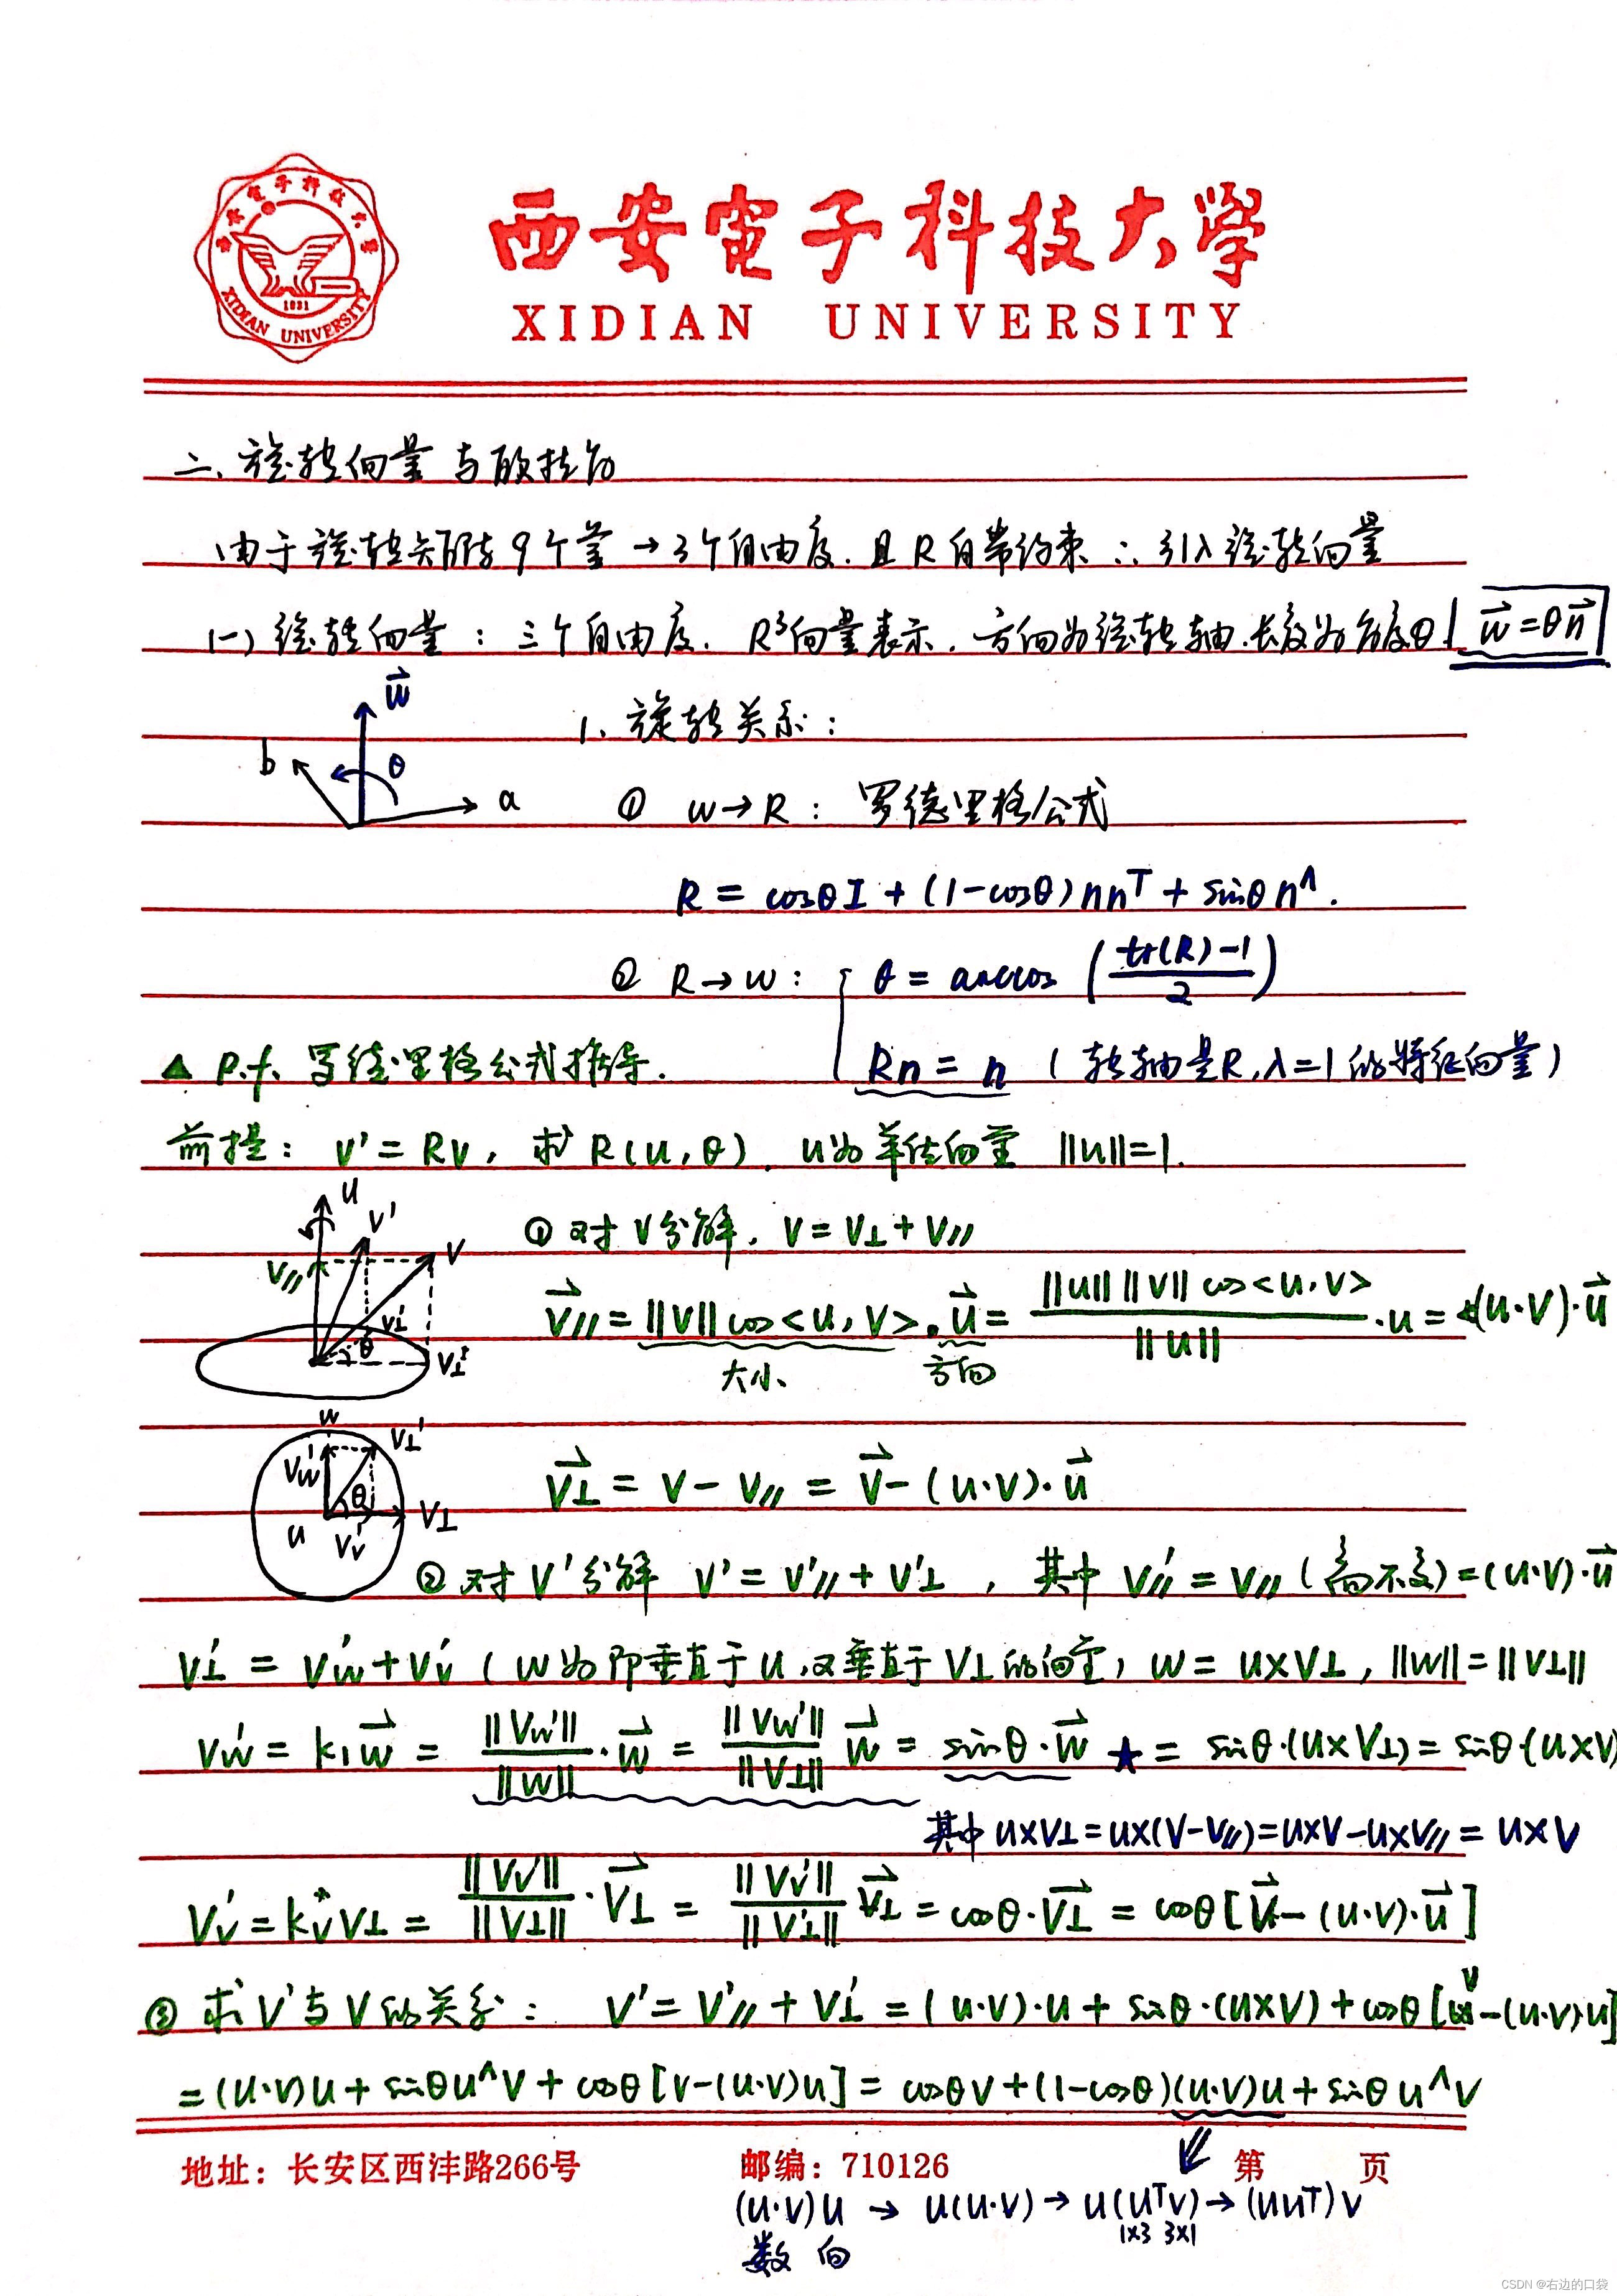 西安電子科技大學
XIDIAN UNIVERSITY
1931
XIDIAN UNIVERSITY
二、旋转向量与欧拉角
由于旋转矩阵9个量→3个自由度.且R自带约束∴引入旋转向量
(一)旋转向量:三个自由度. R³向量表示.方向为旋转轴.长度为角度θ. w=θn
w
b
θ
a
1、旋转关系:
① w→R: 罗德里格公式
R = cosθI + (1-cosθ)nnᵀ + sinθ n^.
② R→w: θ = arccos (tr(R)-1 / 2)
▲ P.f. 罗德里格公式推导.
Rn = n (转轴是R,λ=1的特征向量)
前提: v'=Rv, 求R(u,θ), u为单位向量 ||u||=1.
u
v'
v
v//
v⊥'
θ
v⊥
① 对v分解, v=v⊥+v//
v// = ||v||cos<u,v>·u = ||u|| ||v|| cos<u,v> / ||u|| ·u = (u·v)·u
大小 方向
w
v⊥'
vw'
θ
v⊥
u
vv'
v⊥ = v-v// = v-(u·v)·u
② 对v'分解 v'=v'//+v'⊥, 其中 v//'=v//(方向不变)=(u·v)·u
v⊥' = vw'+vv' (w为即垂直于u,又垂直于v⊥的向量) w=u×v⊥, ||w||=||v⊥||
vw' = k₁w = ||vw'||/||w|| ·w = ||vw'||/||v⊥|| w = sinθ·w ★ = sinθ·(u×v⊥)=sinθ·(u×v)
其中u×v⊥=u×(v-v//)=u×v-u×v//=u×v
vv' = kv v⊥ = ||vv'||/||v⊥|| ·v⊥ = ||vv'||/||v'⊥|| v⊥ = cosθ·v⊥ = cosθ[v-(u·v)·u]
③ 求v'与v的关系: v'=v'//+v⊥'=(u·v)·u+sinθ·(u×v)+cosθ[v-(u·v)·u]
=(u·v)u+sinθu^v+cosθ[v-(u·v)u]=cosθv+(1-cosθ)(u·v)u+sinθu^v
地址：长安区西沣路266号 邮编：710126 第 页
(u·v)u → u(u·v)→u(uᵀv)→(uuᵀ)v
1×3 3×1
数 向
CSDN @右边的口袋